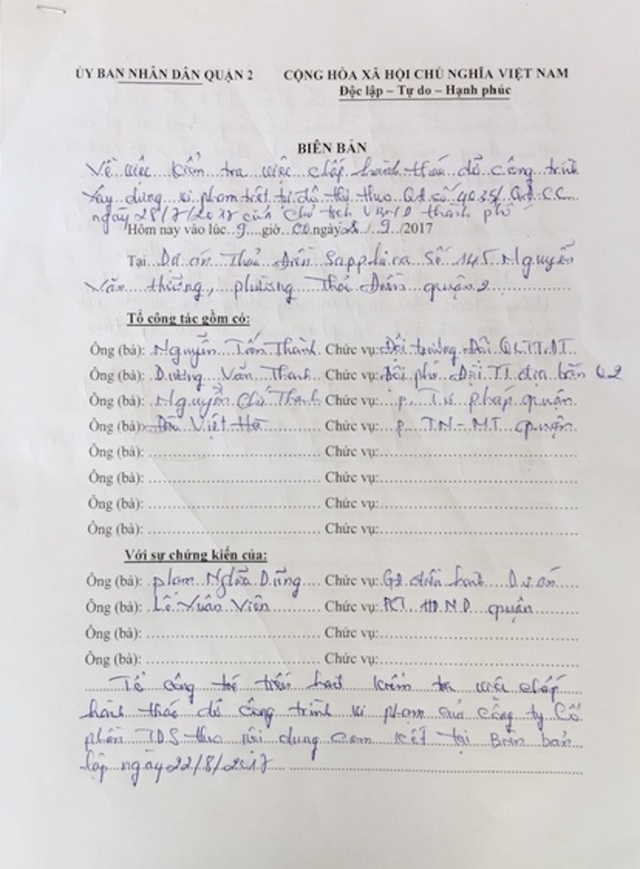 ỦY BAN NHÂN DÂN QUẬN 2 CỘNG HÒA XÃ HỘI CHỦ NGHĨA VIỆT NAM
Độc lập – Tự do – Hạnh phúc
BIÊN BẢN
Về việc kiểm tra việc chấp hành tháo dỡ công trình
xây dựng vi phạm trật tự đô thị theo QĐ số 4035/QĐ-CC
ngày 28/7/2017 của Chủ tịch UBND thành phố
Hôm nay vào lúc 9 giờ 00 ngày 28/9/2017
Tại Dự án Thảo Điền Sapphire Số 145 Nguyễn
Văn Hưởng, phường Thảo Điền quận 2
Tổ công tác gồm có:
Ông (bà): Nguyễn Tấn Thành Chức vụ: Đội trưởng Đội QLTTĐT
Ông (bà): Dương Văn Thanh Chức vụ: Đội phó Đội TT địa bàn Q2
Ông (bà): Nguyễn Chí Thanh Chức vụ: p. Tư pháp quận
Ông (bà): Việt Hà Chức vụ: p. TN-MT quận
Ông (bà): Chức vụ:
Ông (bà): Chức vụ:
Ông (bà): Chức vụ:
Ông (bà): Chức vụ:
Với sự chứng kiến của:
Ông (bà): Phạm Nghĩa Dũng Chức vụ: GĐ điều hành Dự án
Ông (bà): Lê Xuân Viên Chức vụ: PCT HĐND quận
Ông (bà): Chức vụ:
Ông (bà): Chức vụ:
Tổ công tác tiến hành kiểm tra việc chấp
hành tháo dỡ công trình vi phạm của công ty Cổ
phần TDS theo nội dung cam kết tại Biên bản
lập ngày 22/8/2017